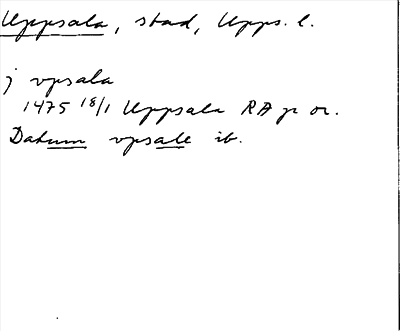 Uppsala, stad, Upps. l.
j vpsala
1475 18/1 Uppsala RA p or.
Datum vpsale ib.